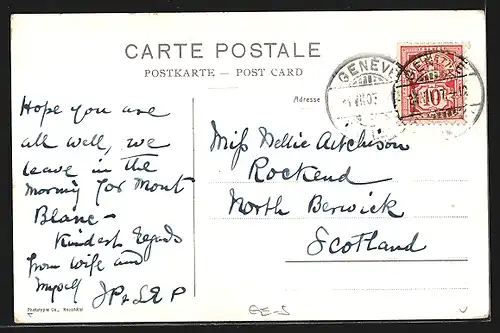 CARTE POSTALE
POSTKARTE – POST CARD
Adresse
GENÈVE
GENÈVE
10
Hope you are
all well, we
leave in the
morning for Mont
Blanc –
Kindest Regards
from wife and
myself
JP & LEP
Miss Nellie Aitchison
Rockend
North Berwick
Scotland
Phototypie Co., Neuchâtel
GE-S